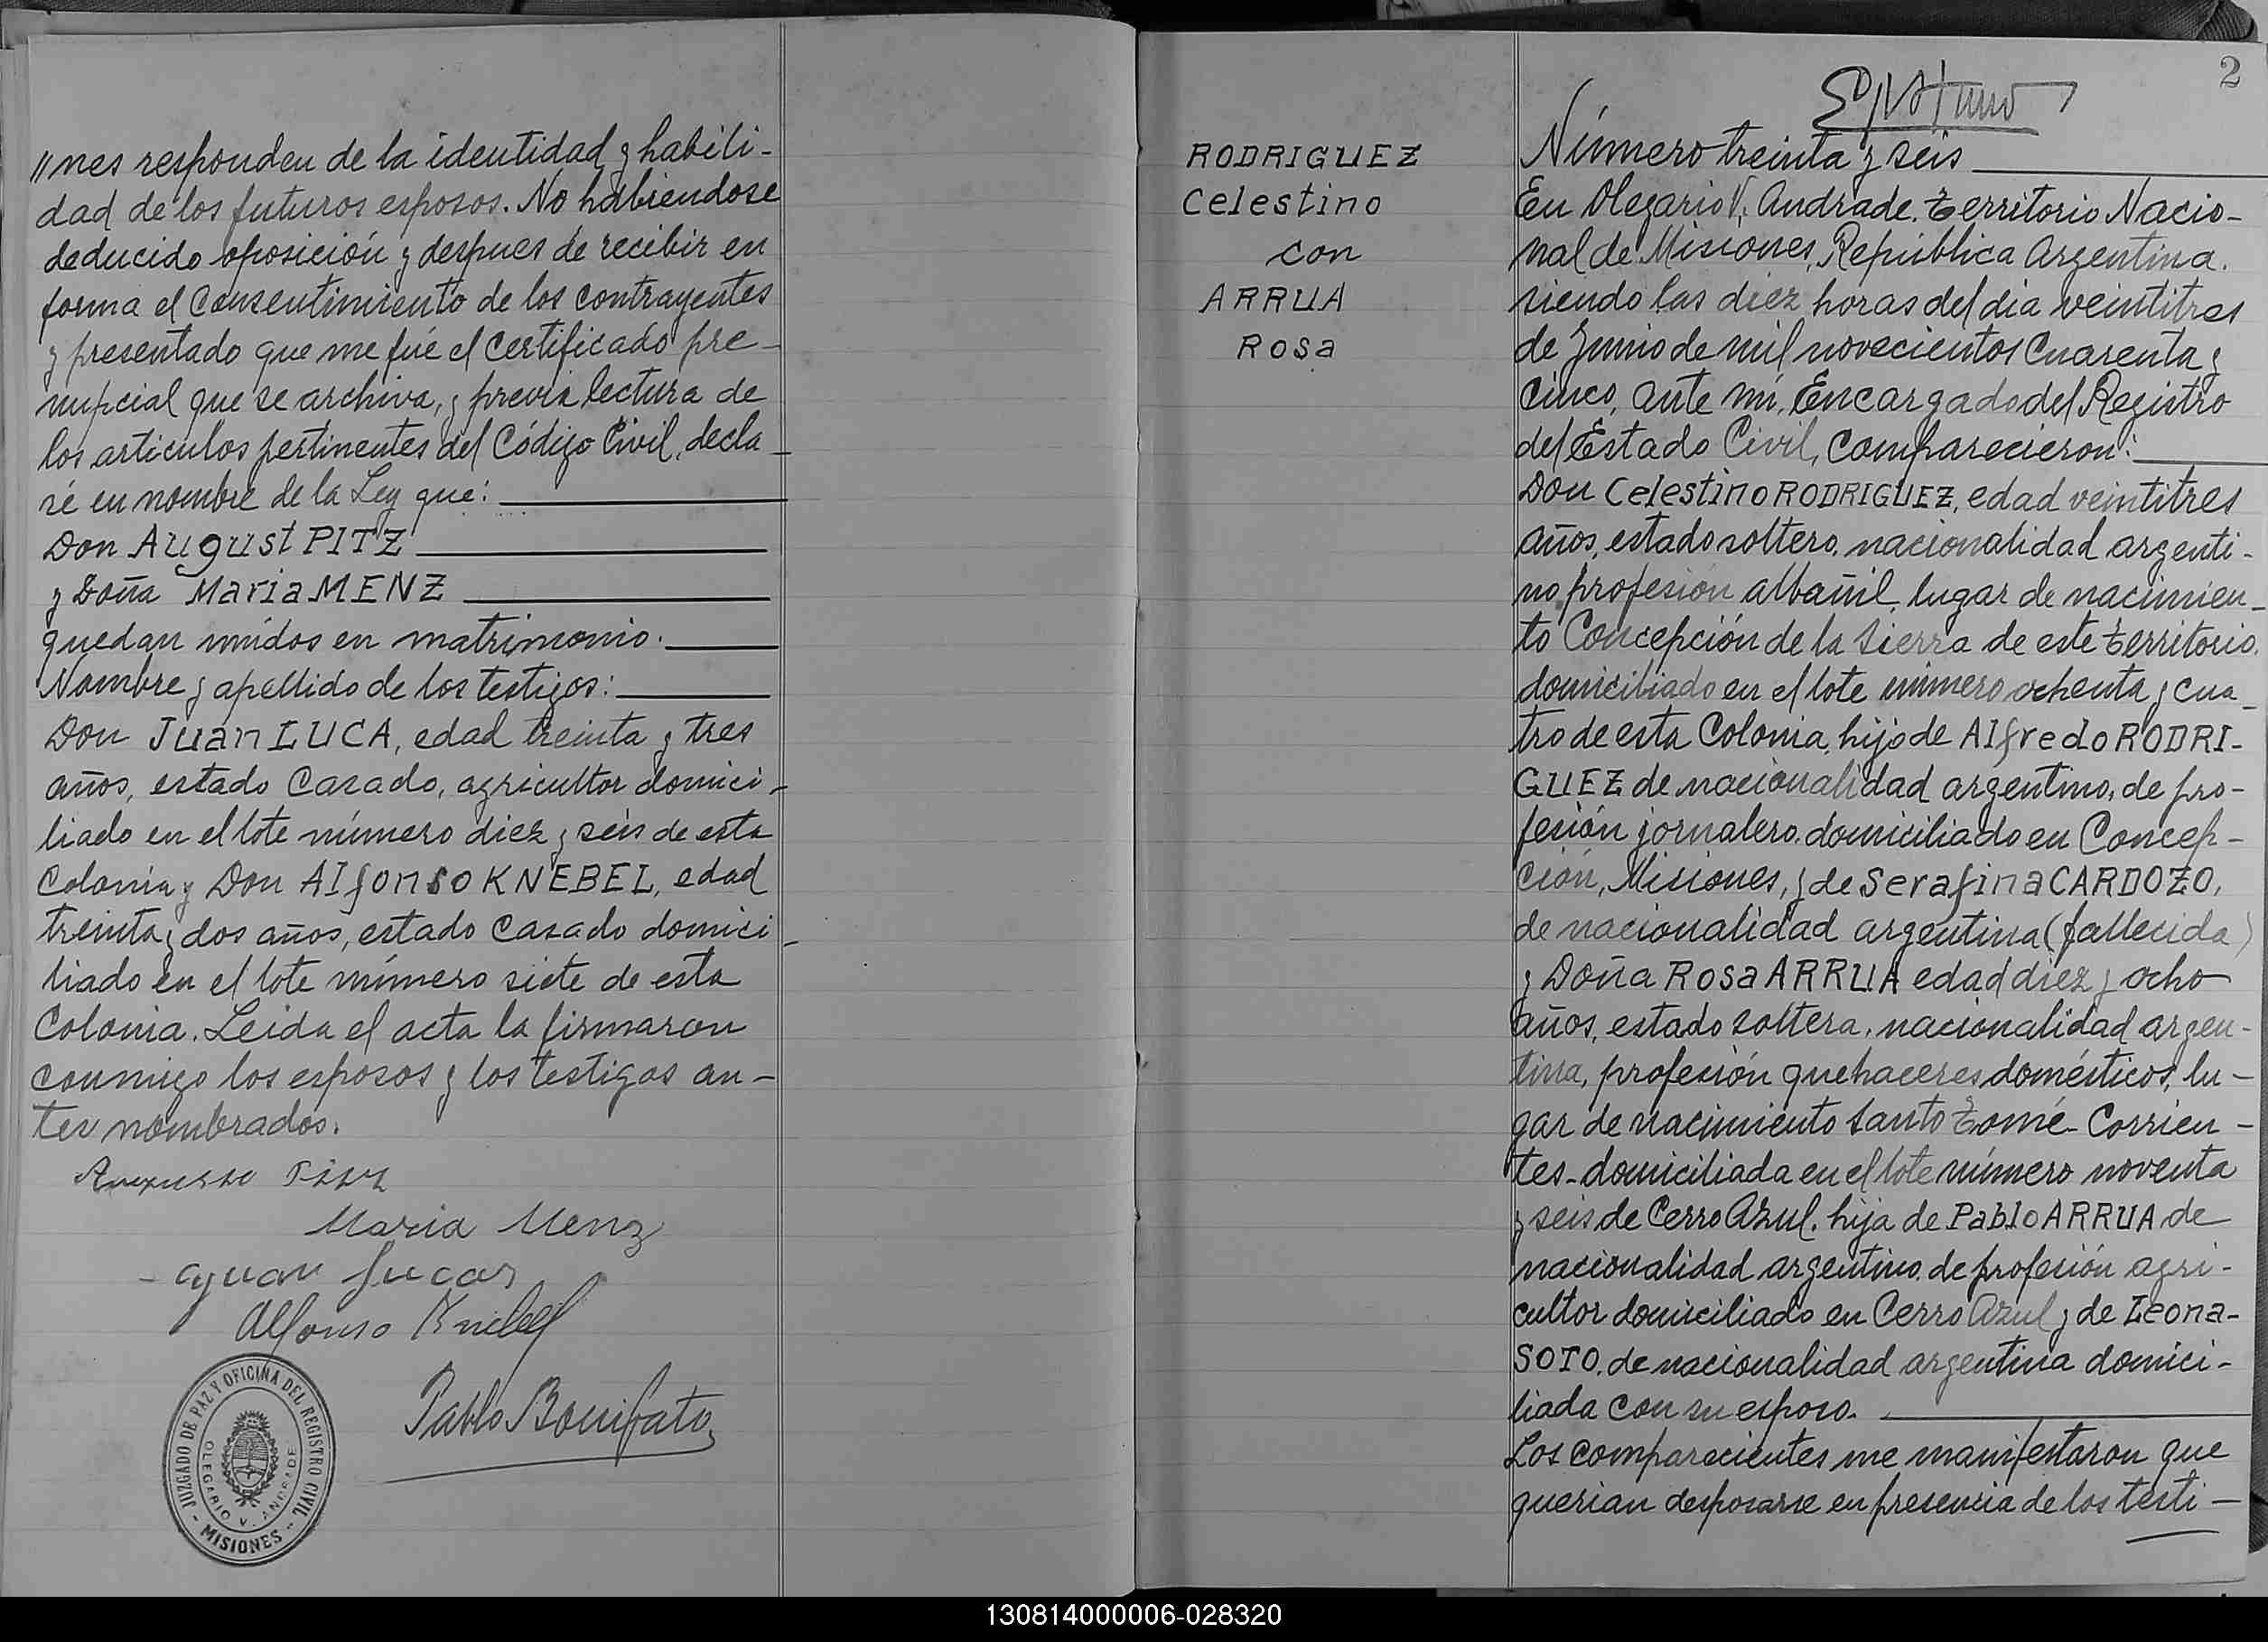 "nes responden de la identidad y habili-
dad de los futuros esposos. No habiendose
deducido oposición y despues de recibir en
forma el consentimiento de los contrayentes
y presentado que me fué el certificado pre-
nupcial que se archiva, y previa lectura de
los articulos pertinentes del Código Civil, decla-
ré en nombre de la Ley que:
Don August PITZ
y Doña Maria MENZ
quedan unidos en matrimonio.
Nombre y apellido de los testigos:
Don Juan LUCA, edad treinta y tres
años, estado casado, agricultor domici-
liado en el lote número diez y seis de esta
Colonia y Don Alfonso KNEBEL, edad
treinta y dos años, estado casado domici-
liado en el lote número siete de esta
Colonia. Leida el acta la firmaron
conmigo los esposos y los testigos an-
tes nombrados.
Maria Menz
Alfonso Knebel
Pablo Bonifato
JUZGADO DE PAZ Y OFICINA DEL REGISTRO CIVIL
OLEGARIO V. ANDRADE
- MISIONES -
RODRIGUEZ
Celestino
con
ARRUA
Rosa
2
Número treinta y seis
En Olegario V. Andrade. Territorio Nacio-
nal de Misiones, República Argentina.
siendo las diez horas del dia veintitres
de Junio de mil novecientos cuarenta y
cinco, ante mí, Encargado del Registro
del Estado Civil, comparecieron:
Don Celestino RODRIGUEZ, edad veintitres
años, estado soltero, nacionalidad argenti-
no, profesión albañil, lugar de nacimien-
to Concepción de la Sierra de este territorio.
domiciliado en el lote número ochenta y cua-
tro de esta Colonia, hijo de Alfredo RODRI-
GUEZ de nacionalidad argentino, de pro-
fesión jornalero, domiciliado en Concep-
ción, Misiones, y de Serafina CARDOZO,
de nacionalidad argentina (fallecida)
y Doña Rosa ARRUA edad diez y ocho
años, estado soltera, nacionalidad argen-
tina, profesión quehaceres domésticos, lu-
gar de nacimiento Santo Tomé - Corrien-
tes - domiciliada en el lote número noventa
y seis de Cerro Azul. hija de Pablo ARRUA de
nacionalidad argentino, de profesión agri-
cultor domiciliado en Cerro Azul y de Leona-
SOTO, de nacionalidad argentina domici-
liada con su esposo.
Los comparecientes me manifestaron que
querian desposarse en presencia de los testi-
130814000006-028320